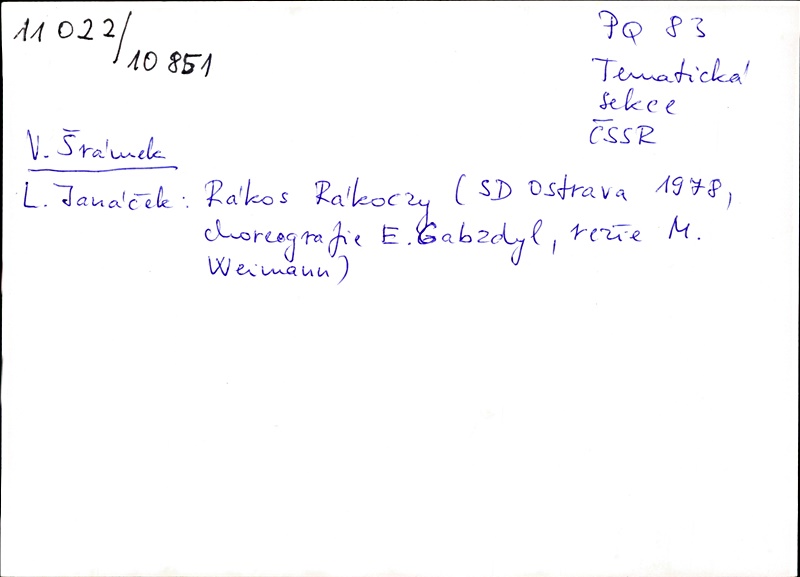 11 022/
10 851
PQ 83
Tematická
sekce
ČSSR
V. Šrámek
L. Janáček: Rákos Rákoczy (SD Ostrava 1978,
choreografie E. Gabzdyl, režie M.
Weimann)